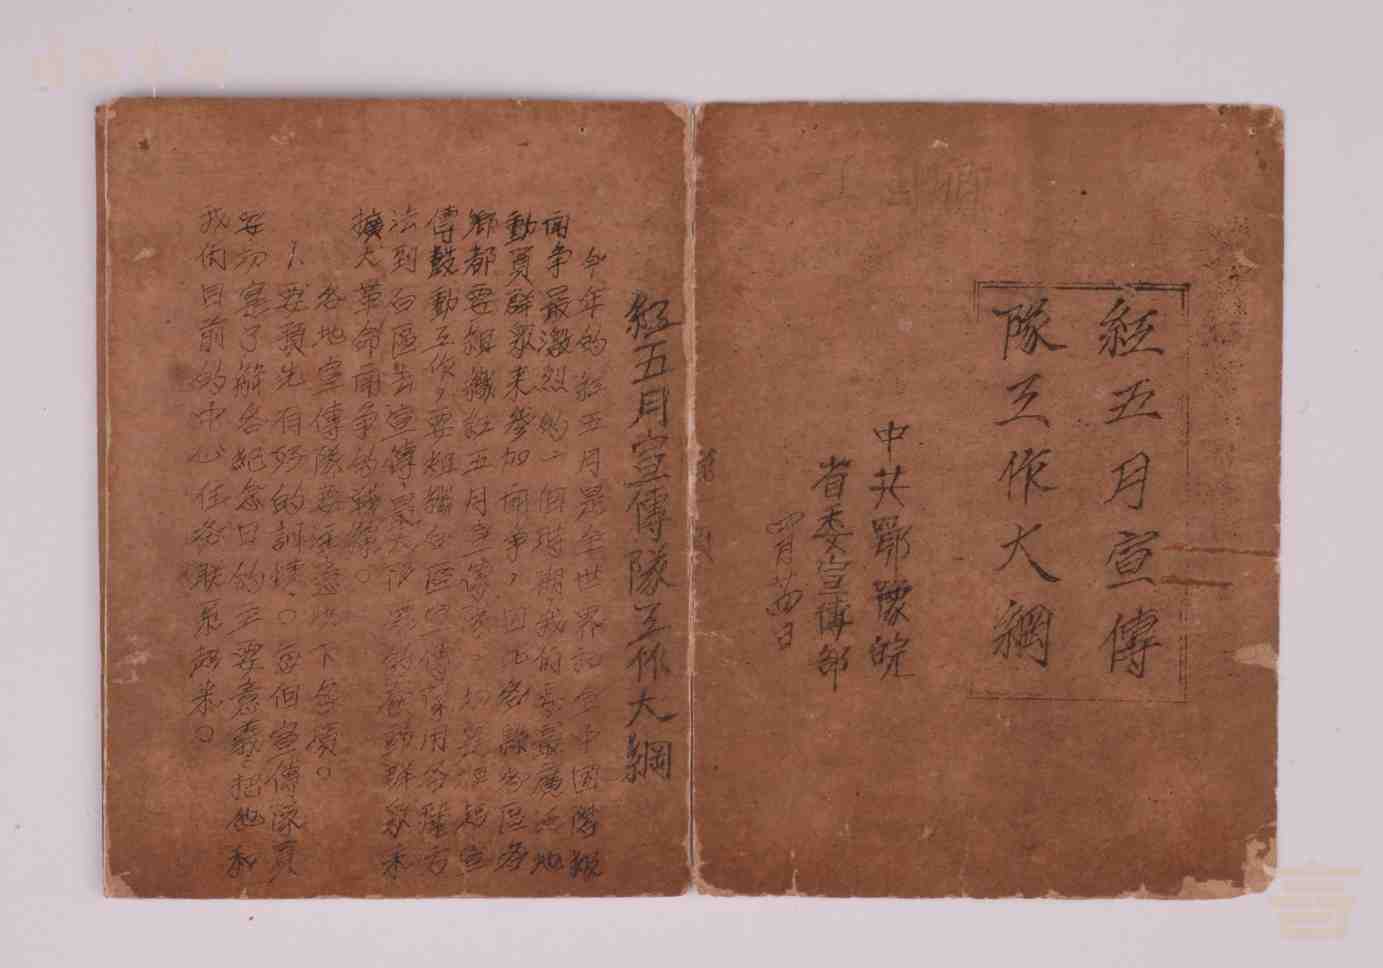 紅五月宣傳
隊工作大綱
中共鄂豫皖
省委宣傳部
四月廿四日
紅五月宣傳隊工作大綱
今年的紅五月是全世界和全中國階級
鬥爭最激烈的一個時期我們要最廣大地
動員群眾來參加鬥爭，因此各縣各區各
鄉都要組織紅五月宣傳隊
傳鼓動工作，要組織白區宣傳隊用各種方
法到白區去宣傳 群眾來
擴大革命鬥爭的戰線。
各地宣傳隊要注意以下各項。
1.要預先有好的訓練。每個宣傳隊員
要切實了解各紀念日的主要意義，把他和
我們目前的中心任務聯系起來。